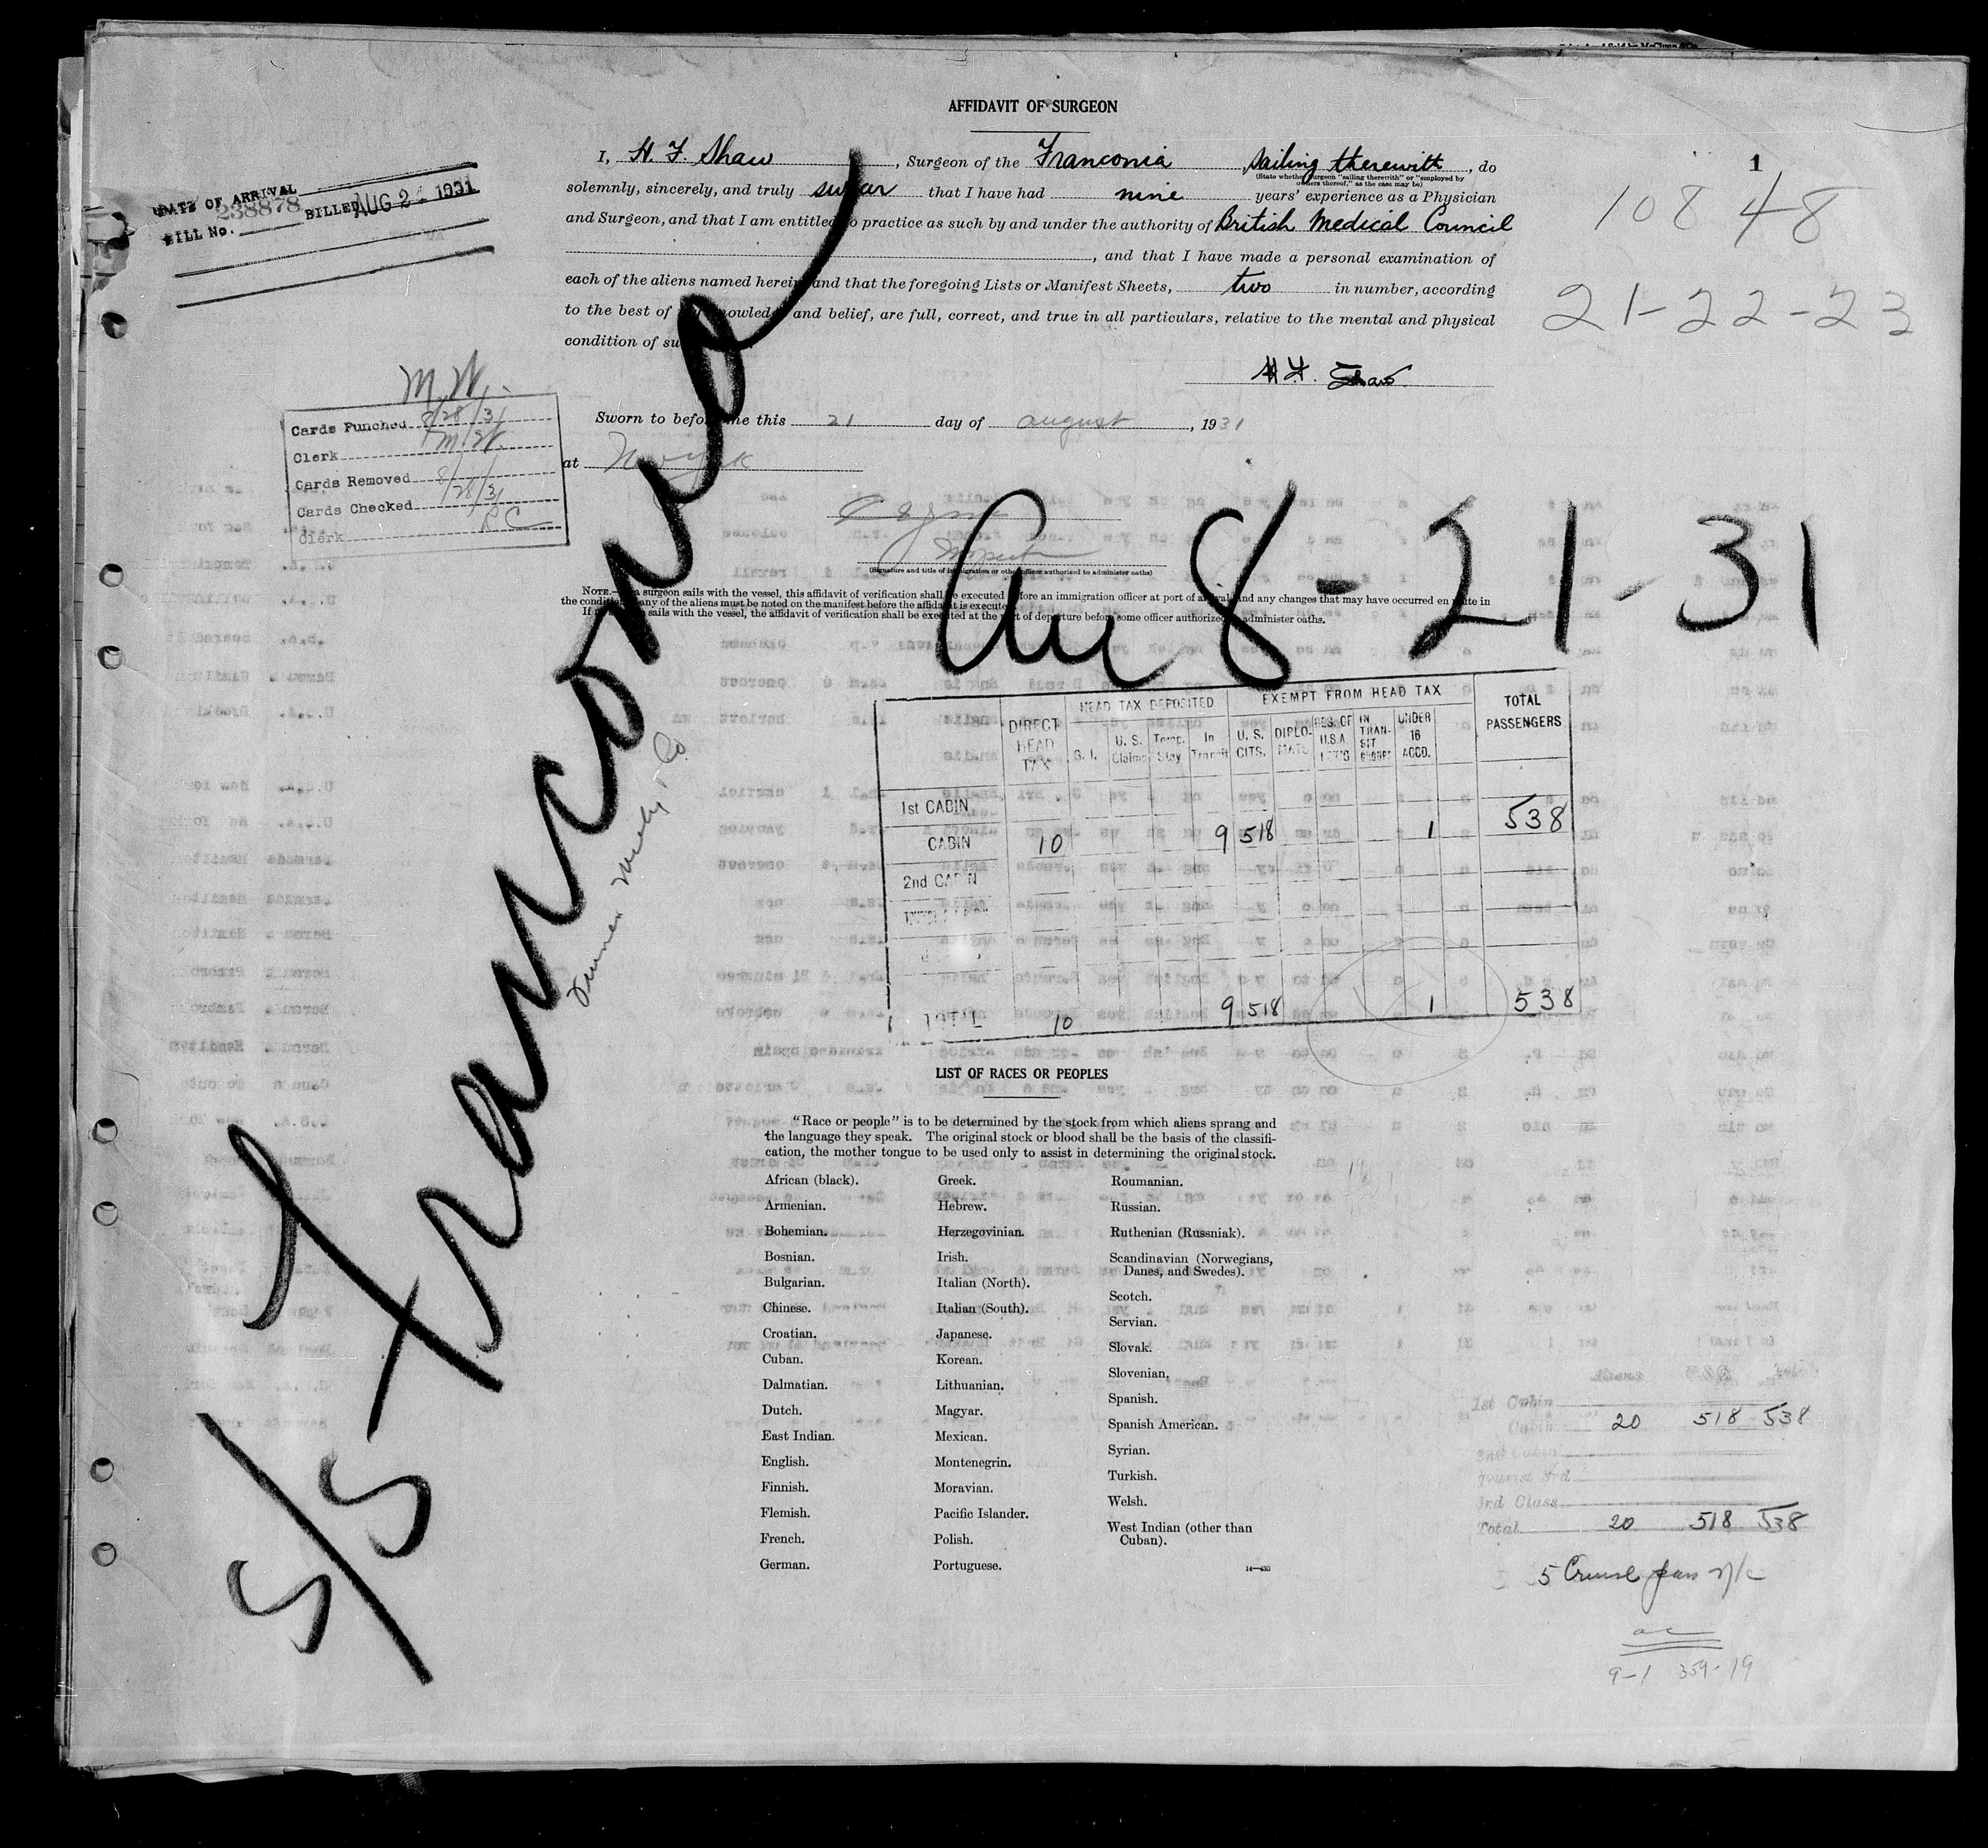 AFFIDAVIT OF SURGEON
1
I, H. F. Shaw, Surgeon of the Franconia, sailing therewith, do
(State whether surgeon "sailing therewith" or "employed by
owners thereof," as the case may be)
solemnly, sincerely, and truly swear that I have had nine years' experience as a Physician
and Surgeon, and that I am entitled to practice as such by and under the authority of British Medical Council
, and that I have made a personal examination of
each of the aliens named herein and that the foregoing Lists or Manifest Sheets, two in number, according
to the best of my knowledge and belief, are full, correct, and true in all particulars, relative to the mental and physical
condition of su
H. F. Shaw
Sworn to before me this 21 day of august, 1931
at New York
Inspector
(Signature and title of immigration or other officer authorized to administer oaths)
DATE OF ARRIVAL
238878 BILLED AUG 24 1931
BILL No.
10848
21-22-23
M.W.
Cards Punched 8/28/31
Clerk M.W.
Cards Removed
Cards Checked 8/28/31
Clerk RC
NOTE.—If a surgeon sails with the vessel, this affidavit of verification shall be executed before an immigration officer at port of arrival and any changes that may have occurred en route in
the condition of any of the aliens must be noted on the manifest before the affidavit is executed
If sails with the vessel, the affidavit of verification shall be executed at the port of departure before some officer authorized to administer oaths.
S/S Franconia
8-21-31
DIRECT HEAD TAX
HEAD TAX DEPOSITED
G. I. U. S. Claims Temp. Stay In Transit
EXEMPT FROM HEAD TAX
U. S. CITS. DIPLOMATS RES. OF U.S.A. IN TRANSIT UNDER 16 ACCD.
TOTAL PASSENGERS
1st CABIN
CABIN 10 9 518 1 538
2nd CABIN
TOTAL 10 9 518 1 538
LIST OF RACES OR PEOPLES
"Race or people" is to be determined by the stock from which aliens sprang and
the language they speak. The original stock or blood shall be the basis of the classifi-
cation, the mother tongue to be used only to assist in determining the original stock.
African (black).
Armenian.
Bohemian.
Bosnian.
Bulgarian.
Chinese.
Croatian.
Cuban.
Dalmatian.
Dutch.
East Indian.
English.
Finnish.
Flemish.
French.
German.
Greek.
Hebrew.
Herzegovinian.
Irish.
Italian (North).
Italian (South).
Japanese.
Korean.
Lithuanian.
Magyar.
Mexican.
Montenegrin.
Moravian.
Pacific Islander.
Polish.
Portuguese.
Roumanian.
Russian.
Ruthenian (Russniak).
Scandinavian (Norwegians,
Danes, and Swedes).
Scotch.
Servian.
Slovak.
Slovenian.
Spanish.
Spanish American.
Syrian.
Turkish.
Welsh.
West Indian (other than
Cuban).
14—430
Aliens
1st Cabin
Cabin 20 518 538
2nd Cabin
Tourist 3rd
3rd Class
Total 20 518 538
5 Cruise
9-1 359-19